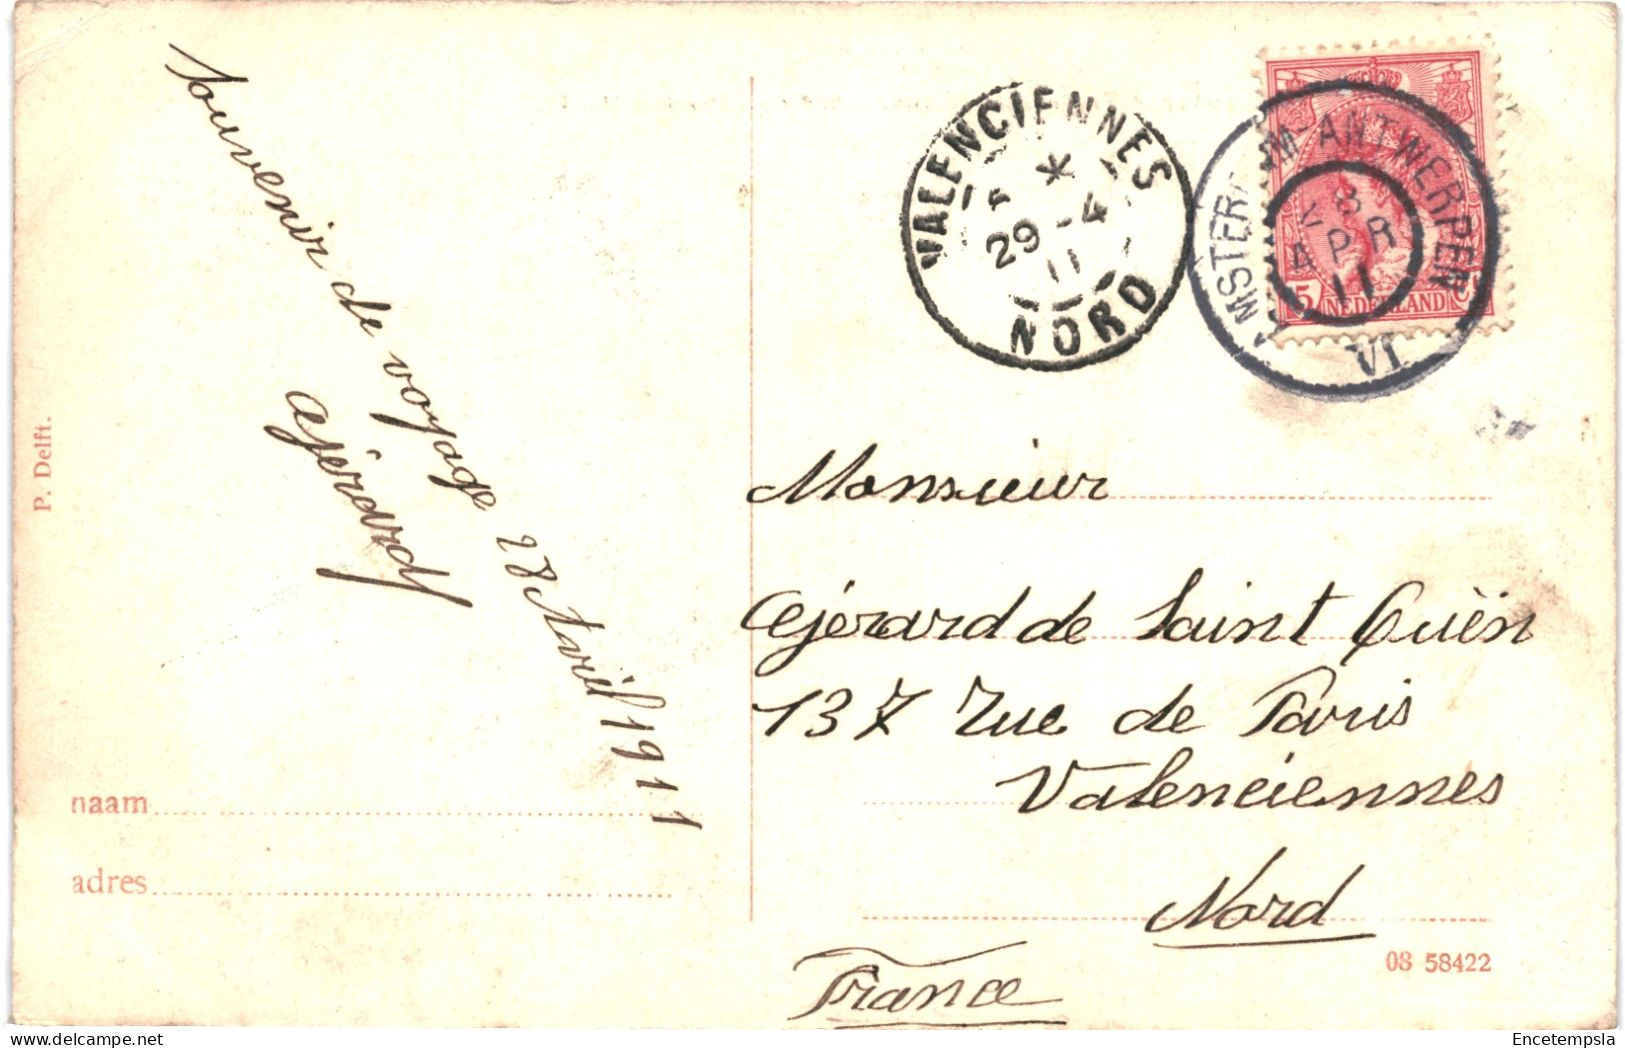 Souvenir de voyage 28 Avril 1911
Gérard
P. Delft.
naam
adres
VALENCIENNES
*
29 -4
11
NORD
AMSTERDAM-ANTWERPEN
APR
11
VI
5
NEDERLAND
Monsieur
Gérard de Saint Quën
137 Rue de Paris
Valenciennes
Nord
France
08 58422
Encetempsla